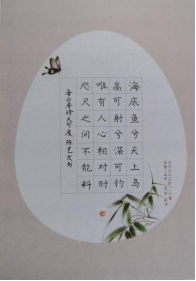 海底鱼兮天上鸟
高可射兮深可钓
唯有人心相对时
咫尺之间不能料
唐白居易诗天可度 陈艺文书